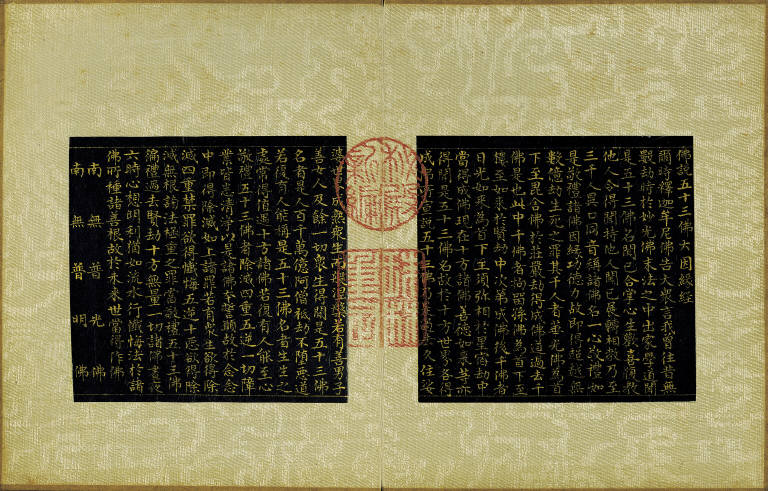 佛說五十三佛大因緣經
爾時釋迦牟尼佛告大眾言我曾往昔無
數劫時於妙光佛末法之中出家學道聞
是五十三佛名聞已合掌心生歡喜復教
他人令得聞持他人聞已展轉相教乃至
三千人異口同音稱諸佛名一心敬禮如
是敬禮諸佛因緣功德力故即得超越無
數億劫生死之罪其千人者華光佛為首
下至毘舍佛於莊嚴劫得成佛道過去千
佛是也此中千佛者拘留孫佛為首下至
樓至如來於賢劫中次第成佛後千佛者
日光如來為首下至須彌相於星宿劫中
當得成佛現在十方諸佛善德如來等亦
得聞是五十三佛名故於十方世界各得
成
五十三佛
久住娑
婆世
眾生
若有善男子
善女人及餘一切眾生得聞是五十三佛
名者是人百千萬億阿僧祇劫不墮惡道
若復有人能稱是五十三佛名者生生之
處常得值遇十方諸佛若復有人能至心
敬禮五十三佛者除滅四重五逆一切障
業皆悉清淨以是諸佛本誓願故於念念
中即得除滅如上諸罪若有眾生欲得除
滅四重禁罪欲得懺悔五逆十惡欲得除
滅無根謗法極重之罪當敬禮五十三佛
徧禮過去賢劫十方無量一切諸佛晝夜
六時心想明利猶如流水行懺悔法於諸
佛所種諸善根故於未來世當得作佛
南無普光佛
南無普明佛